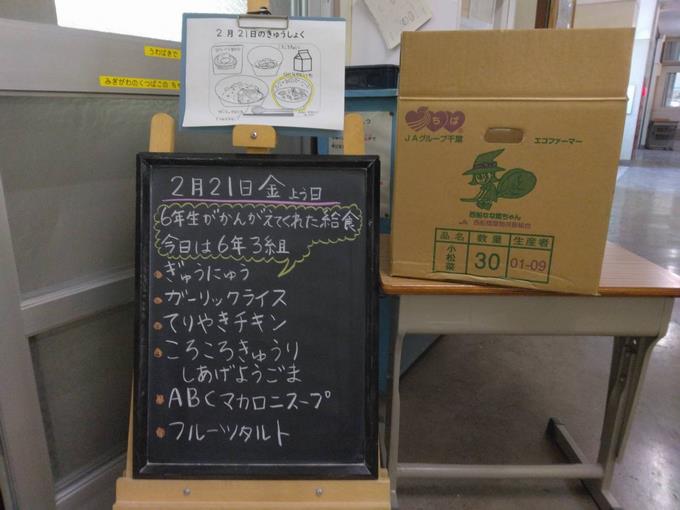 うわばきで
みぎがわのくつばこの
2月21日のきゅうしょく
2月21日金よう日
6年生がかんがえてくれた給食
今日は6年3組
ぎゅうにゅう
ガーリックライス
てりやきチキン
ころころきゅうり
しあげようごま
ABCマカロニスープ
フルーツタルト
ちば
JAグループ千葉
エコファーマー
西船なな菜ちゃん
品名 数量 生産者
小松菜 30 01-09